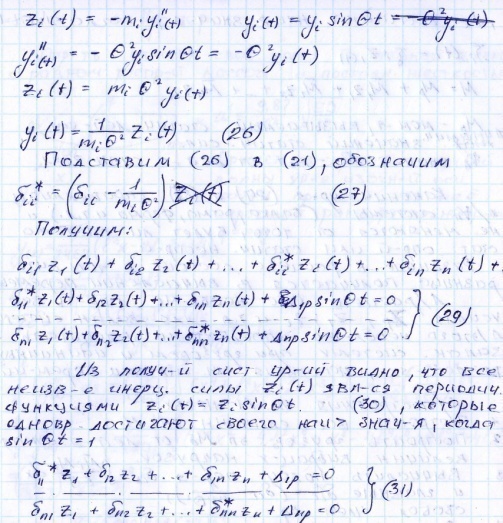 z_i(t) = -m_i y_i''(t)  y_i(t) = y_i sin θt =
y_i''(t) = - θ² y_i sin θt = -θ² y_i(t)
z_i(t) = m_i θ² y_i(t)
y_i(t) = 1/(m_i θ²) z_i(t)  (26)
Подставим (26) в (21), обозначим
δ_ii* = (δ_ii - 1/(m_i θ²)) z_i(t)  (27)
Получим:
δ_i1 z_1(t) + δ_i2 z_2(t) + ... + δ_ii* z_i(t) + ... + δ_in z_n(t) +
δ_11* z_1(t) + δ_12 z_2(t) + ... + δ_1n z_n(t) + Δ_1p sin θt = 0
δ_n1 z_1(t) + δ_n2 z_2(t) + ... + δ_nn* z_n(t) + Δ_np sin θt = 0  } (29)
Из получ-й сист ур-ий видно, что все
неизв-е инерц. силы z_i(t) явл-ся периодич.
функциями z_i(t) = z_i sin θt. (30), которые
одновр. достигают своего наи> знач-я, когда
sin θt = 1
δ_11* z_1 + δ_12 z_2 + ... + δ_1n z_n + Δ_1p = 0
δ_n1 z_1 + δ_n2 z_2 + ... + δ_nn* z_n + Δ_np = 0  } (31)